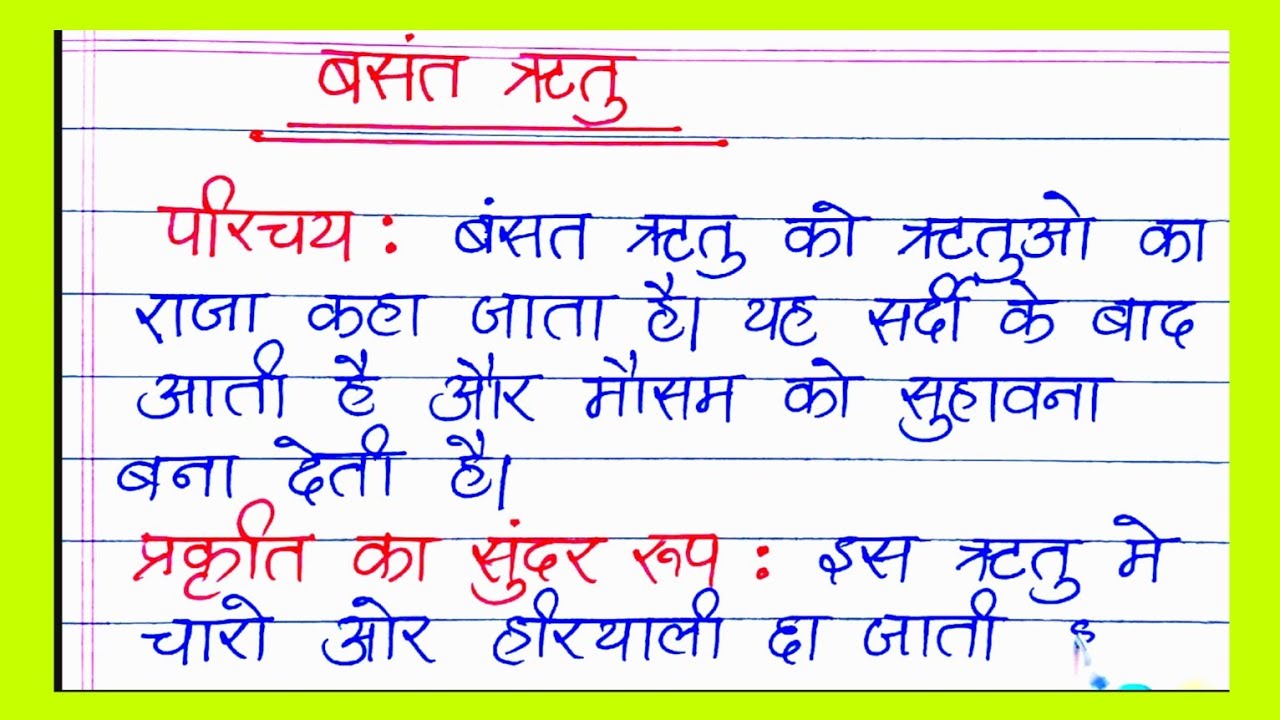 बसंत ऋतु
परिचय : बंसत ऋतु को ऋतुओ का
राजा कहा जाता है। यह सर्दी के बाद
आती है और मौसम को सुहावना
बना देती है।
प्रकृति का सुंदर रूप : इस ऋतु मे
चारो ओर हरियाली छा जाती